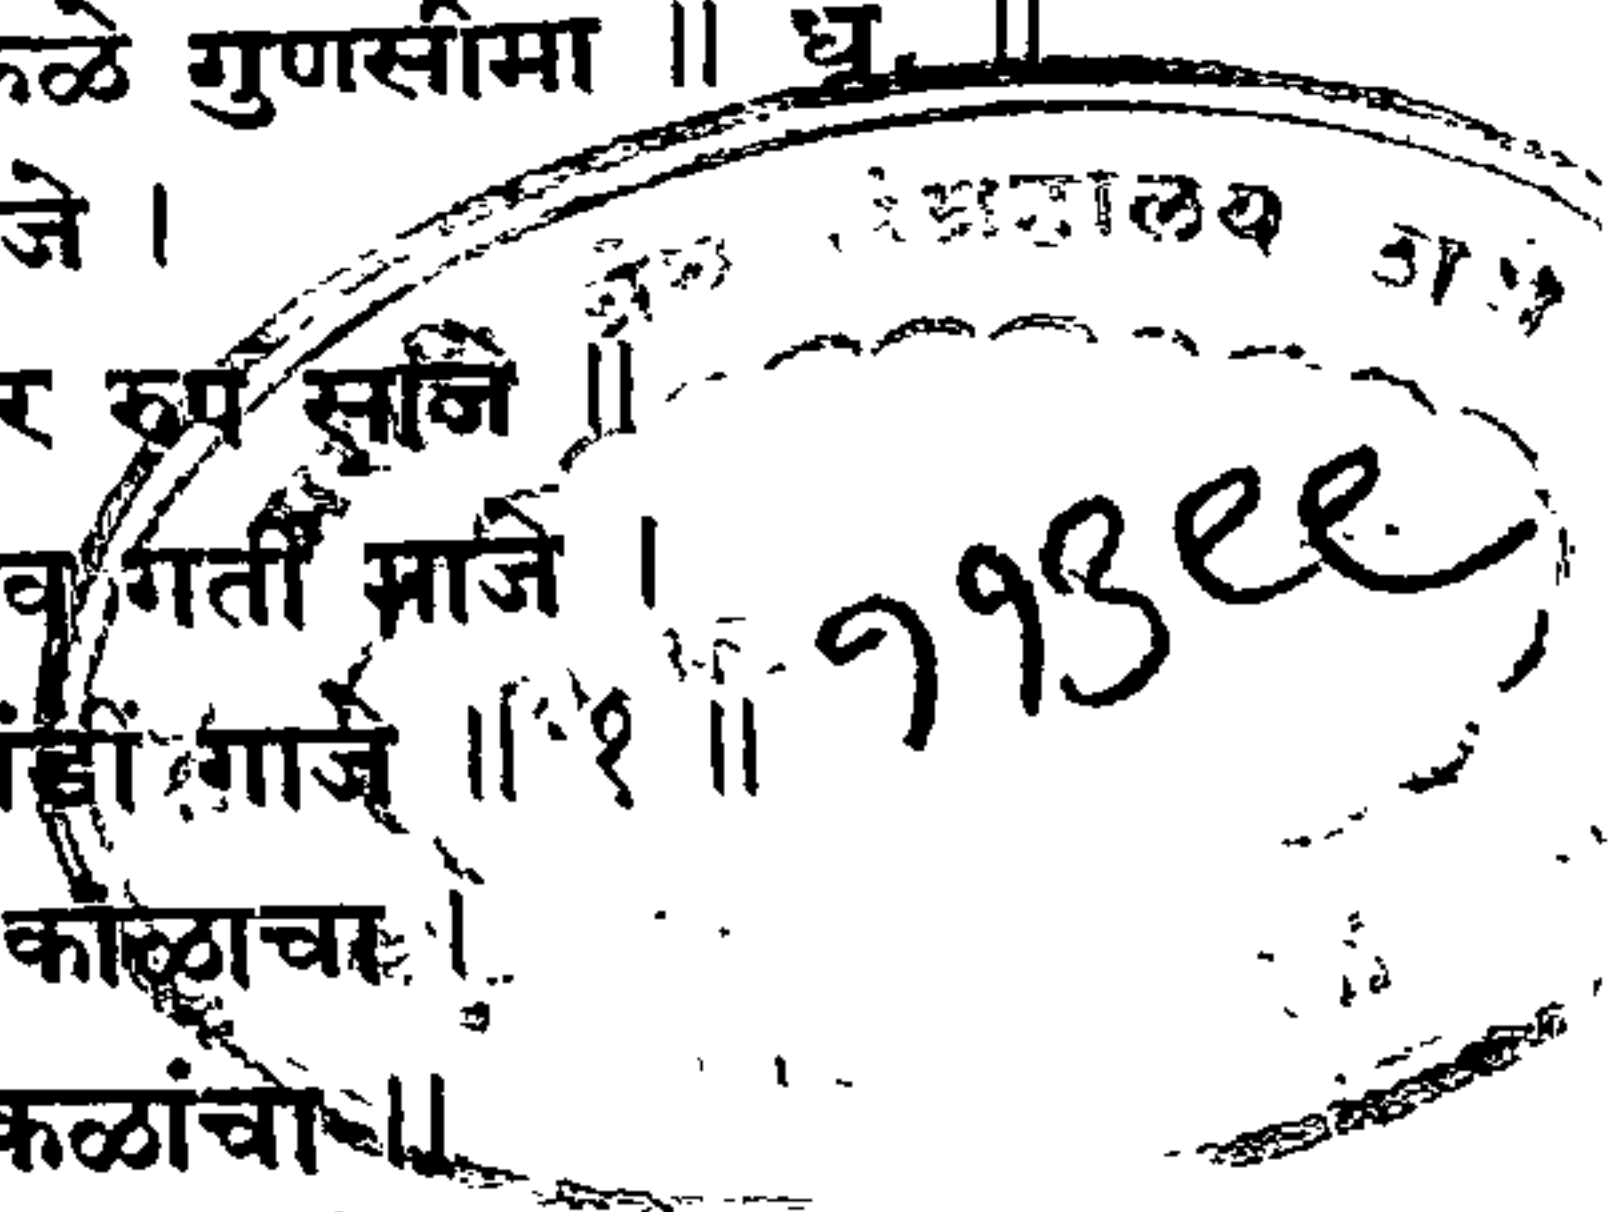 कळे गुणसीमा ॥ धृ. ॥
जे ।
र रूप साजे ॥
व गती माजे ।
गाजे ॥ १ ॥
काळाचा ।
कळांचा ॥
११३९९